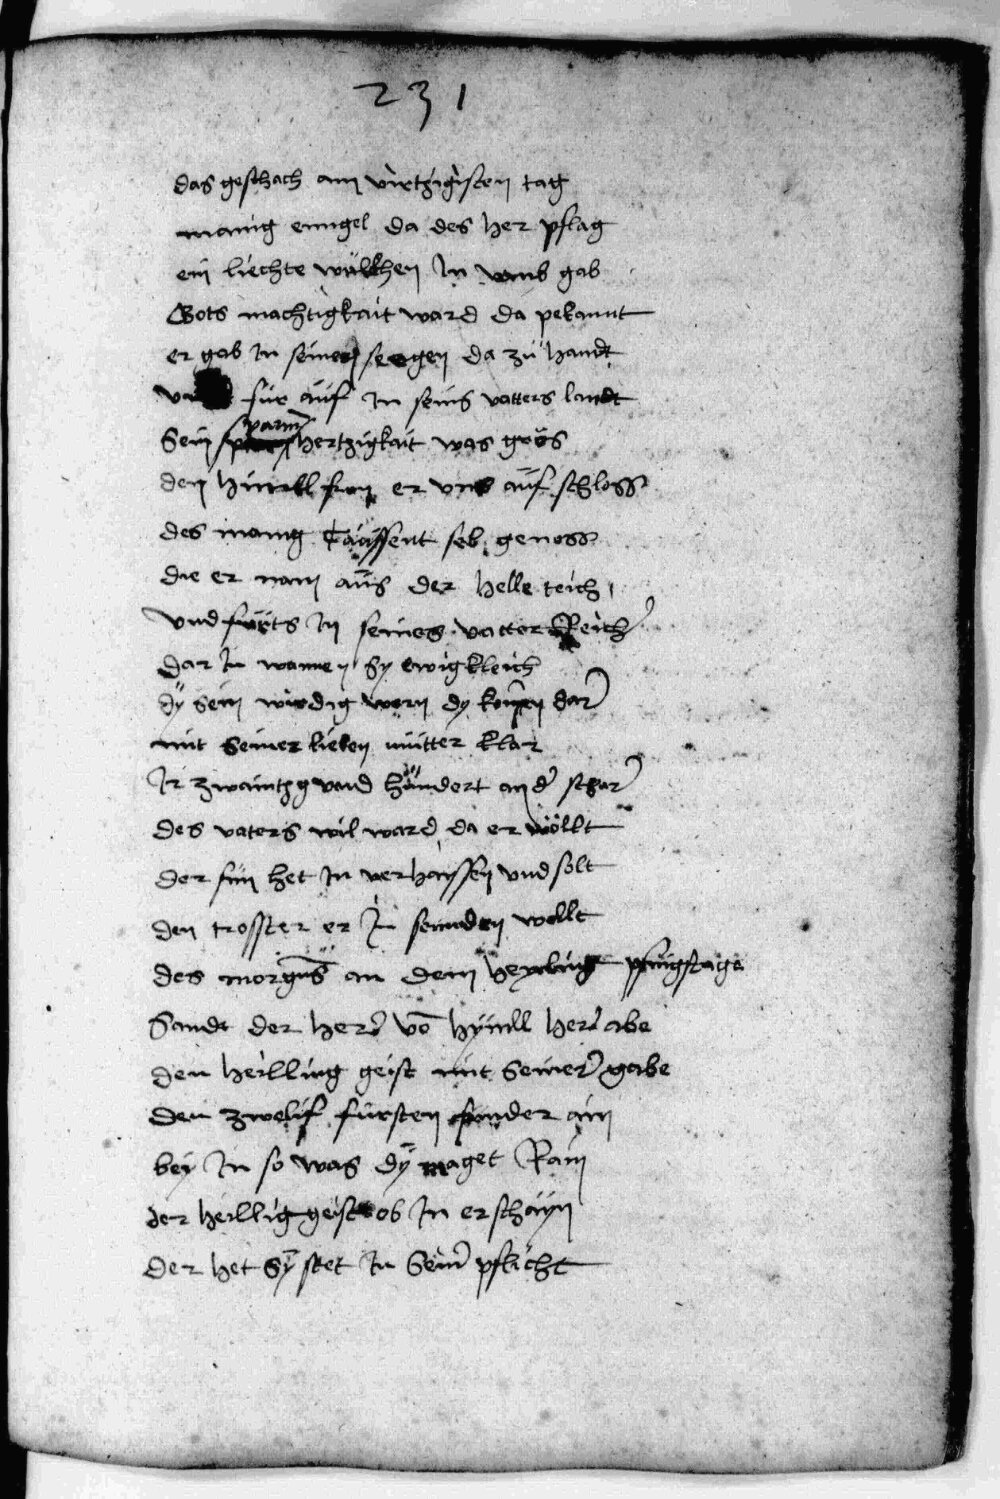 231
das geschach am virtzigisten tag
manig enngel da des her pflag
ein liechte wülkhen In vmb gab
Gots machtigkait ward da pekannt
er gab In seinen seegen da zü handt
für aüf In seins vatters landt
Sein parm hertzigkait was groös
den himell fron er vns aüf schloss
des manig Taüssent seb genoss
die er nam aüs der helle teich
vnd füerts In seines vatter Reich
dar In wannen Sy ewigkleich
dÿ sein wirdig warn dy komen dar
mit seiner lieben mütter klar
Ir zwaintzg vnd hündert an der schar
des vaters wil ward da er wöllt
der sün het In verhayssen vnd solt
den trosster er In sennden wollt
des morgens an dem heyling pfingstage
Sandt der herr vo hymll her abe
den heilling geist mit seiner gabe
den zwelif fürsten sünder ain
bey In so was dÿ maget Rain
der heillig geist ob In erschayn
der het Sÿ stet In seiner pflicht